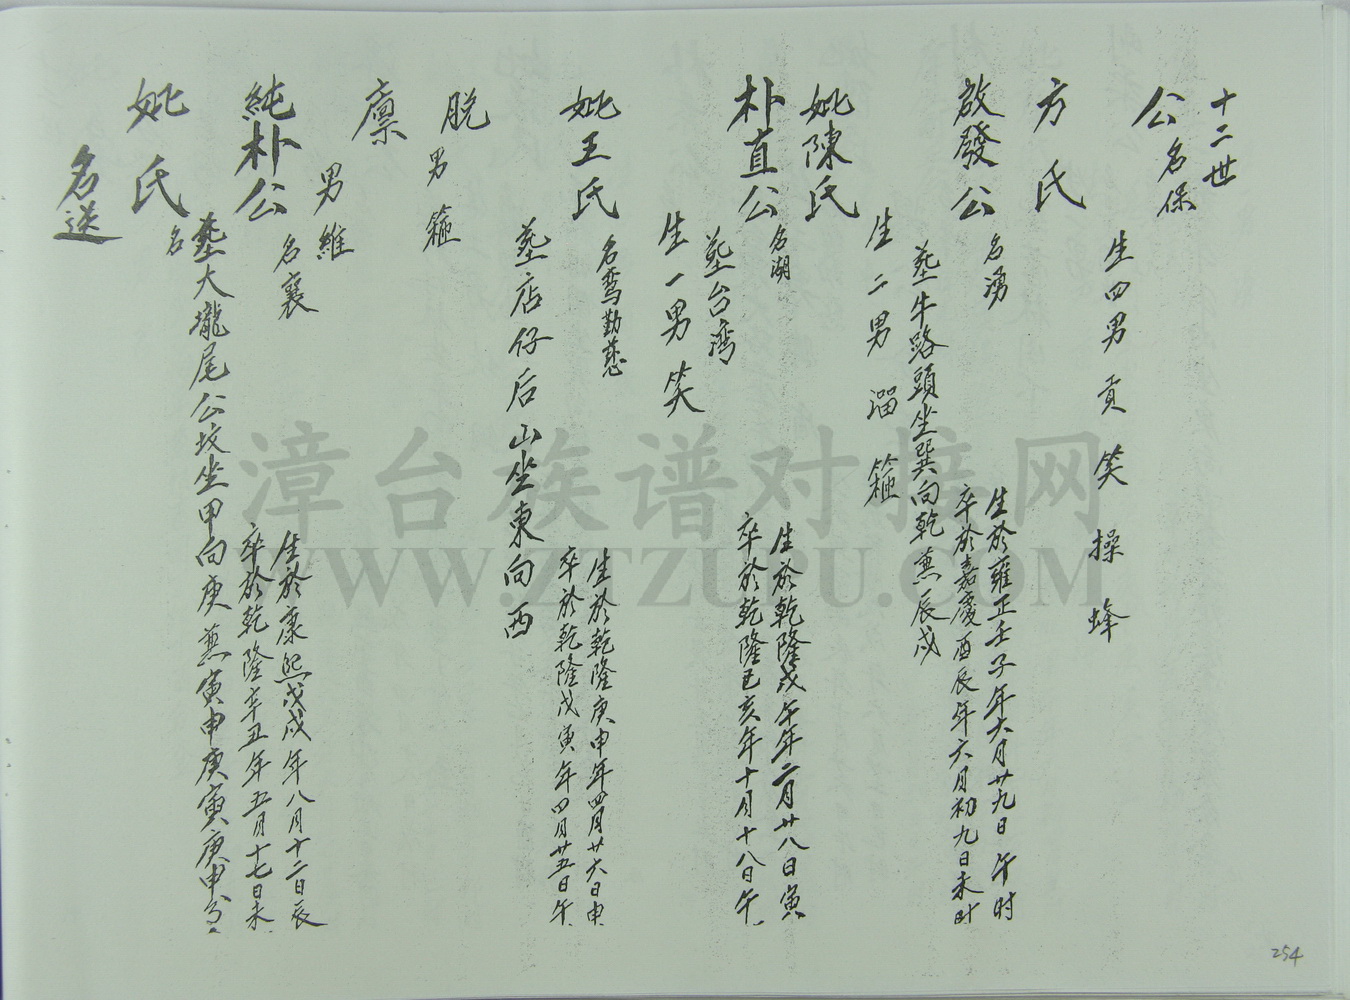 十二世
公 名保
生四男 貢 笑 操 蜂
方氏
啟發公 名湧
生於雍正壬子年六月廿九日午时
卒於嘉慶酉辰年六月初九日未时
塟牛路頭坐巽向乾兼辰戌
生二男 溜 箍
妣陳氏
朴直公 名湖
生於乾隆戊午年二月廿八日寅
卒於乾隆已亥年十月十八日午
塟台湾
生一男 笑
妣王氏 名鸾勤慈
生於乾隆庚申年四月廿六日申
卒於乾隆戊寅年四月廿五日午
塟店仔后山坐東向西
脱 男 箍
廪 男維
純朴公 名裹
生於康熙戊戌年八月十二日辰
卒於乾隆辛丑年五月十七日未
塟大壠尾公坟坐甲向庚兼寅申庚寅庚申分
妣氏 名
名送
254
漳台族谱对接网
WWW.ZTZUPU.COM